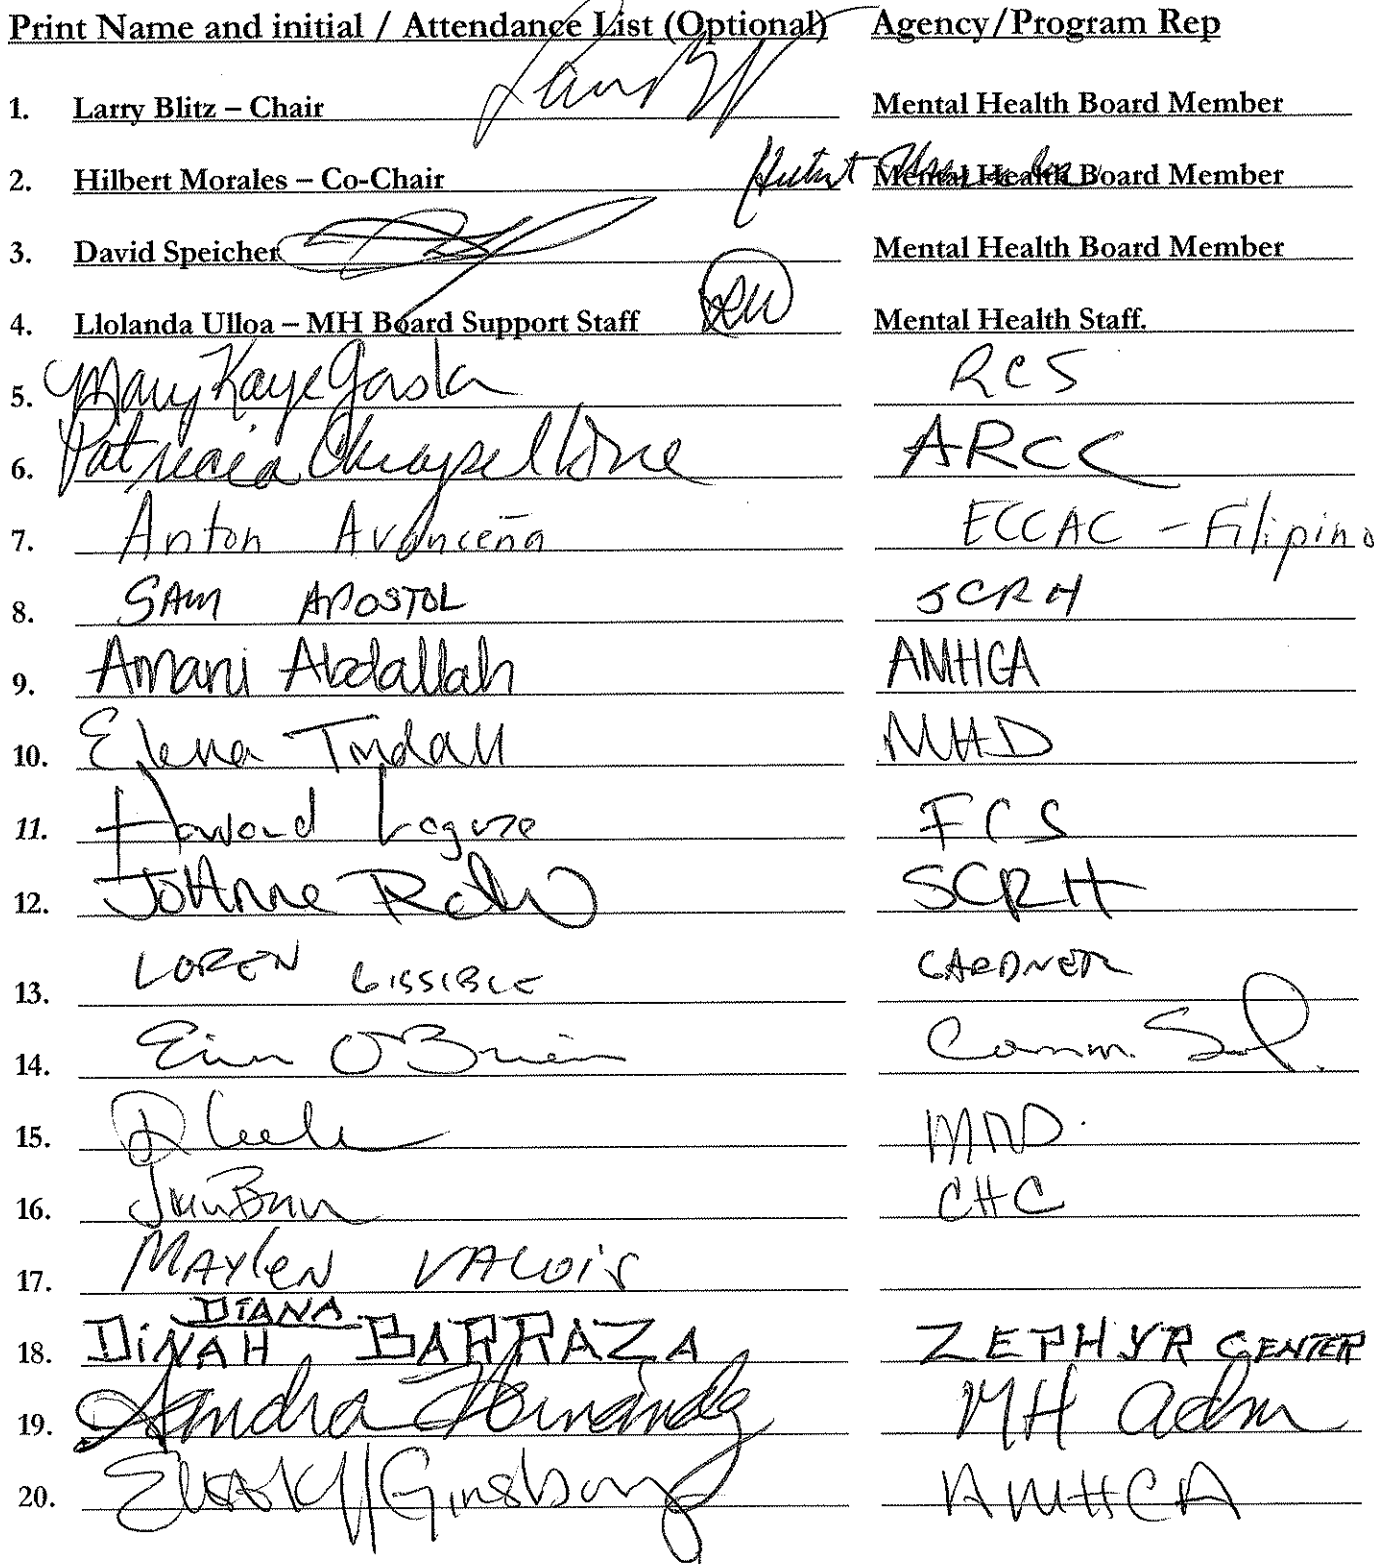 Print Name and initial / Attendance List (Optional) Agency/Program Rep
1. Larry Blitz – Chair Mental Health Board Member
2. Hilbert Morales – Co-Chair Mental Health Board Member
3. David Speicher Mental Health Board Member
4. Llolanda Ulloa – MH Board Support Staff Mental Health Staff.
5. Mary Kaye RCS
6. Patricia ARCC
7. Anton Avanceña ECCAC - Filipino
8. SAM APOSTOL SCRH
9. Amani Abdallah AMHCA
10. Elena Tindall MHD
11. Howard FCS
12. JoAnne SCRH
13. LOREN GARDNER
14. Erin O'Brien Comm. Sol.
15.
16. CHC
17. MAYLEN VALOIS
DIANA
18. DINAH BARRAZA ZEPHYR CENTER
19. Sandra Hernandez MH adm
20. Ginsburg AMHCA